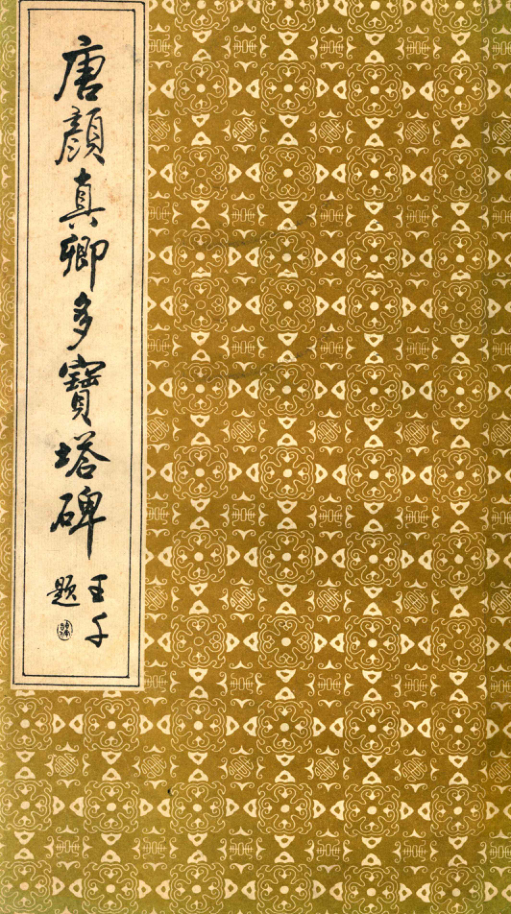 唐顏真卿多寶塔碑
王千
題